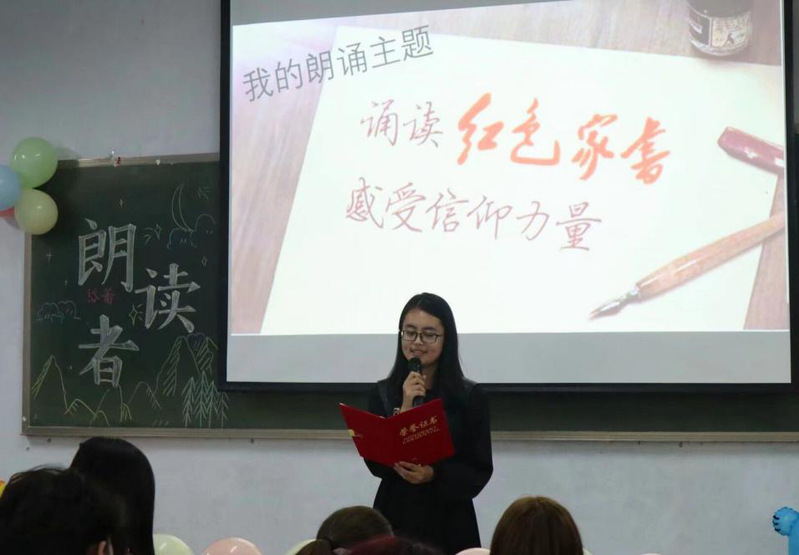 我的朗诵主题
诵读红色家书
感受信仰力量
朗
读
者
荣誉证书